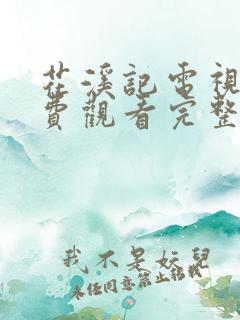 花溪記電視
費觀看完整
我不是妖兒
未經同意禁止轉載